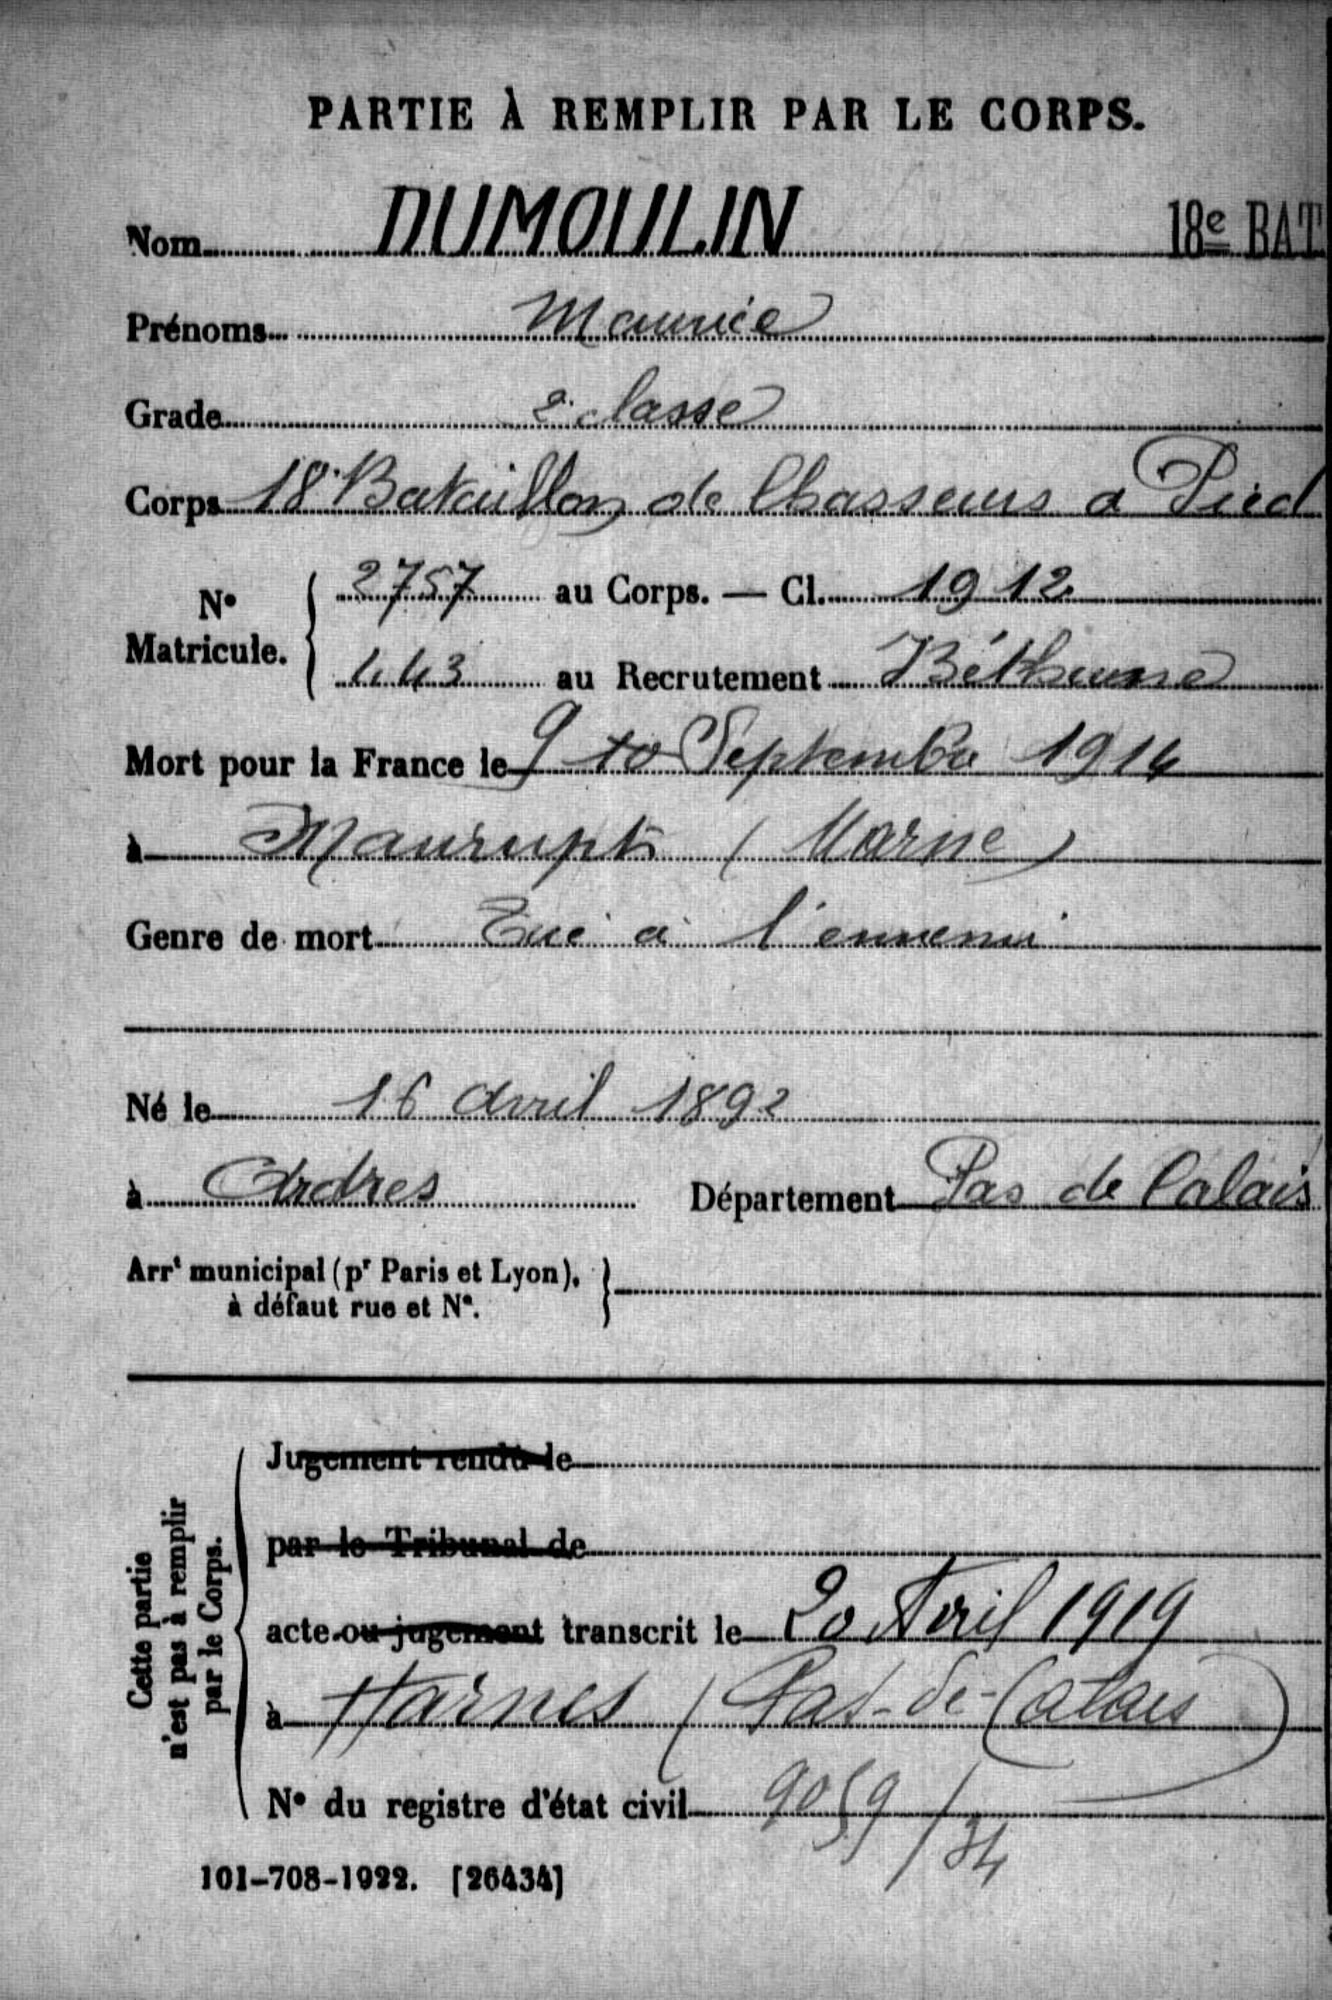 PARTIE À REMPLIR PAR LE CORPS.
Nom DUMOULIN 18e BAT
Prénoms Maurice
Grade 2e classe
Corps 18e Bataillon de Chasseurs a Pied
N° Matricule. 2757 au Corps. — Cl. 1912
443 au Recrutement Béthune
Mort pour la France le 9 10 Septembre 1914
à Maurupt (Marne)
Genre de mort Tué à l'ennemi
Né le 16 Avril 1892
à Ardres Département Pas de Calais
Arrt municipal (pr Paris et Lyon),
à défaut rue et N°.
Cette partie
n'est pas à remplir
par le Corps.
Jugement rendu le
par le Tribunal de
acte ou jugement transcrit le 20 Avril 1919
à Harnes (Pas-de-Calais)
N° du registre d'état civil 9059/34
101-708-1922. [26434]